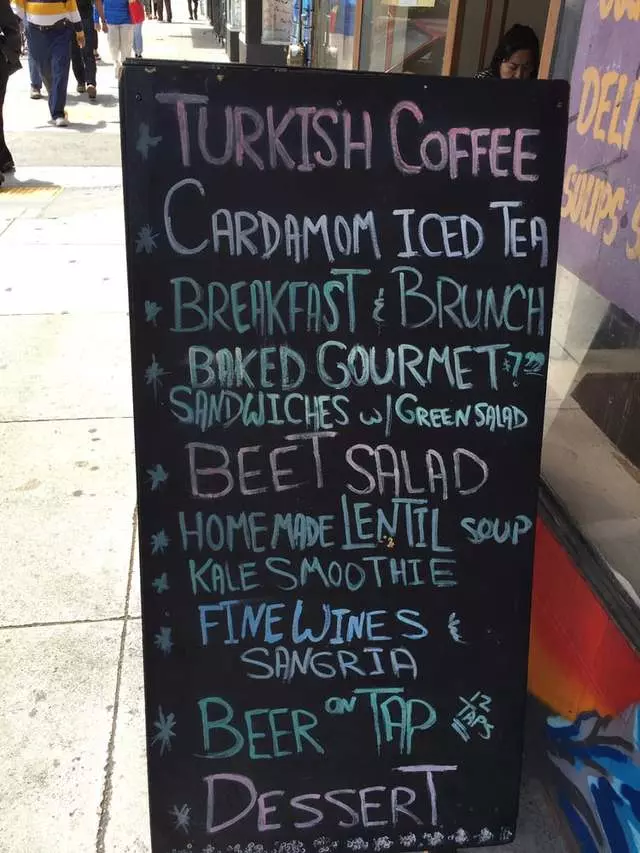 * TURKISH COFFEE
* CARDAMOM ICED TEA
* BREAKFAST & BRUNCH
* BAKED GOURMET
SANDWICHES w/ GREEN SALAD
* BEET SALAD
* HOMEMADE LENTIL SOUP
* KALE SMOOTHIE
* FINE WINES &
SANGRIA
* BEER ON TAP 12 TAPS
* DESSERT
DELI
SOUPS